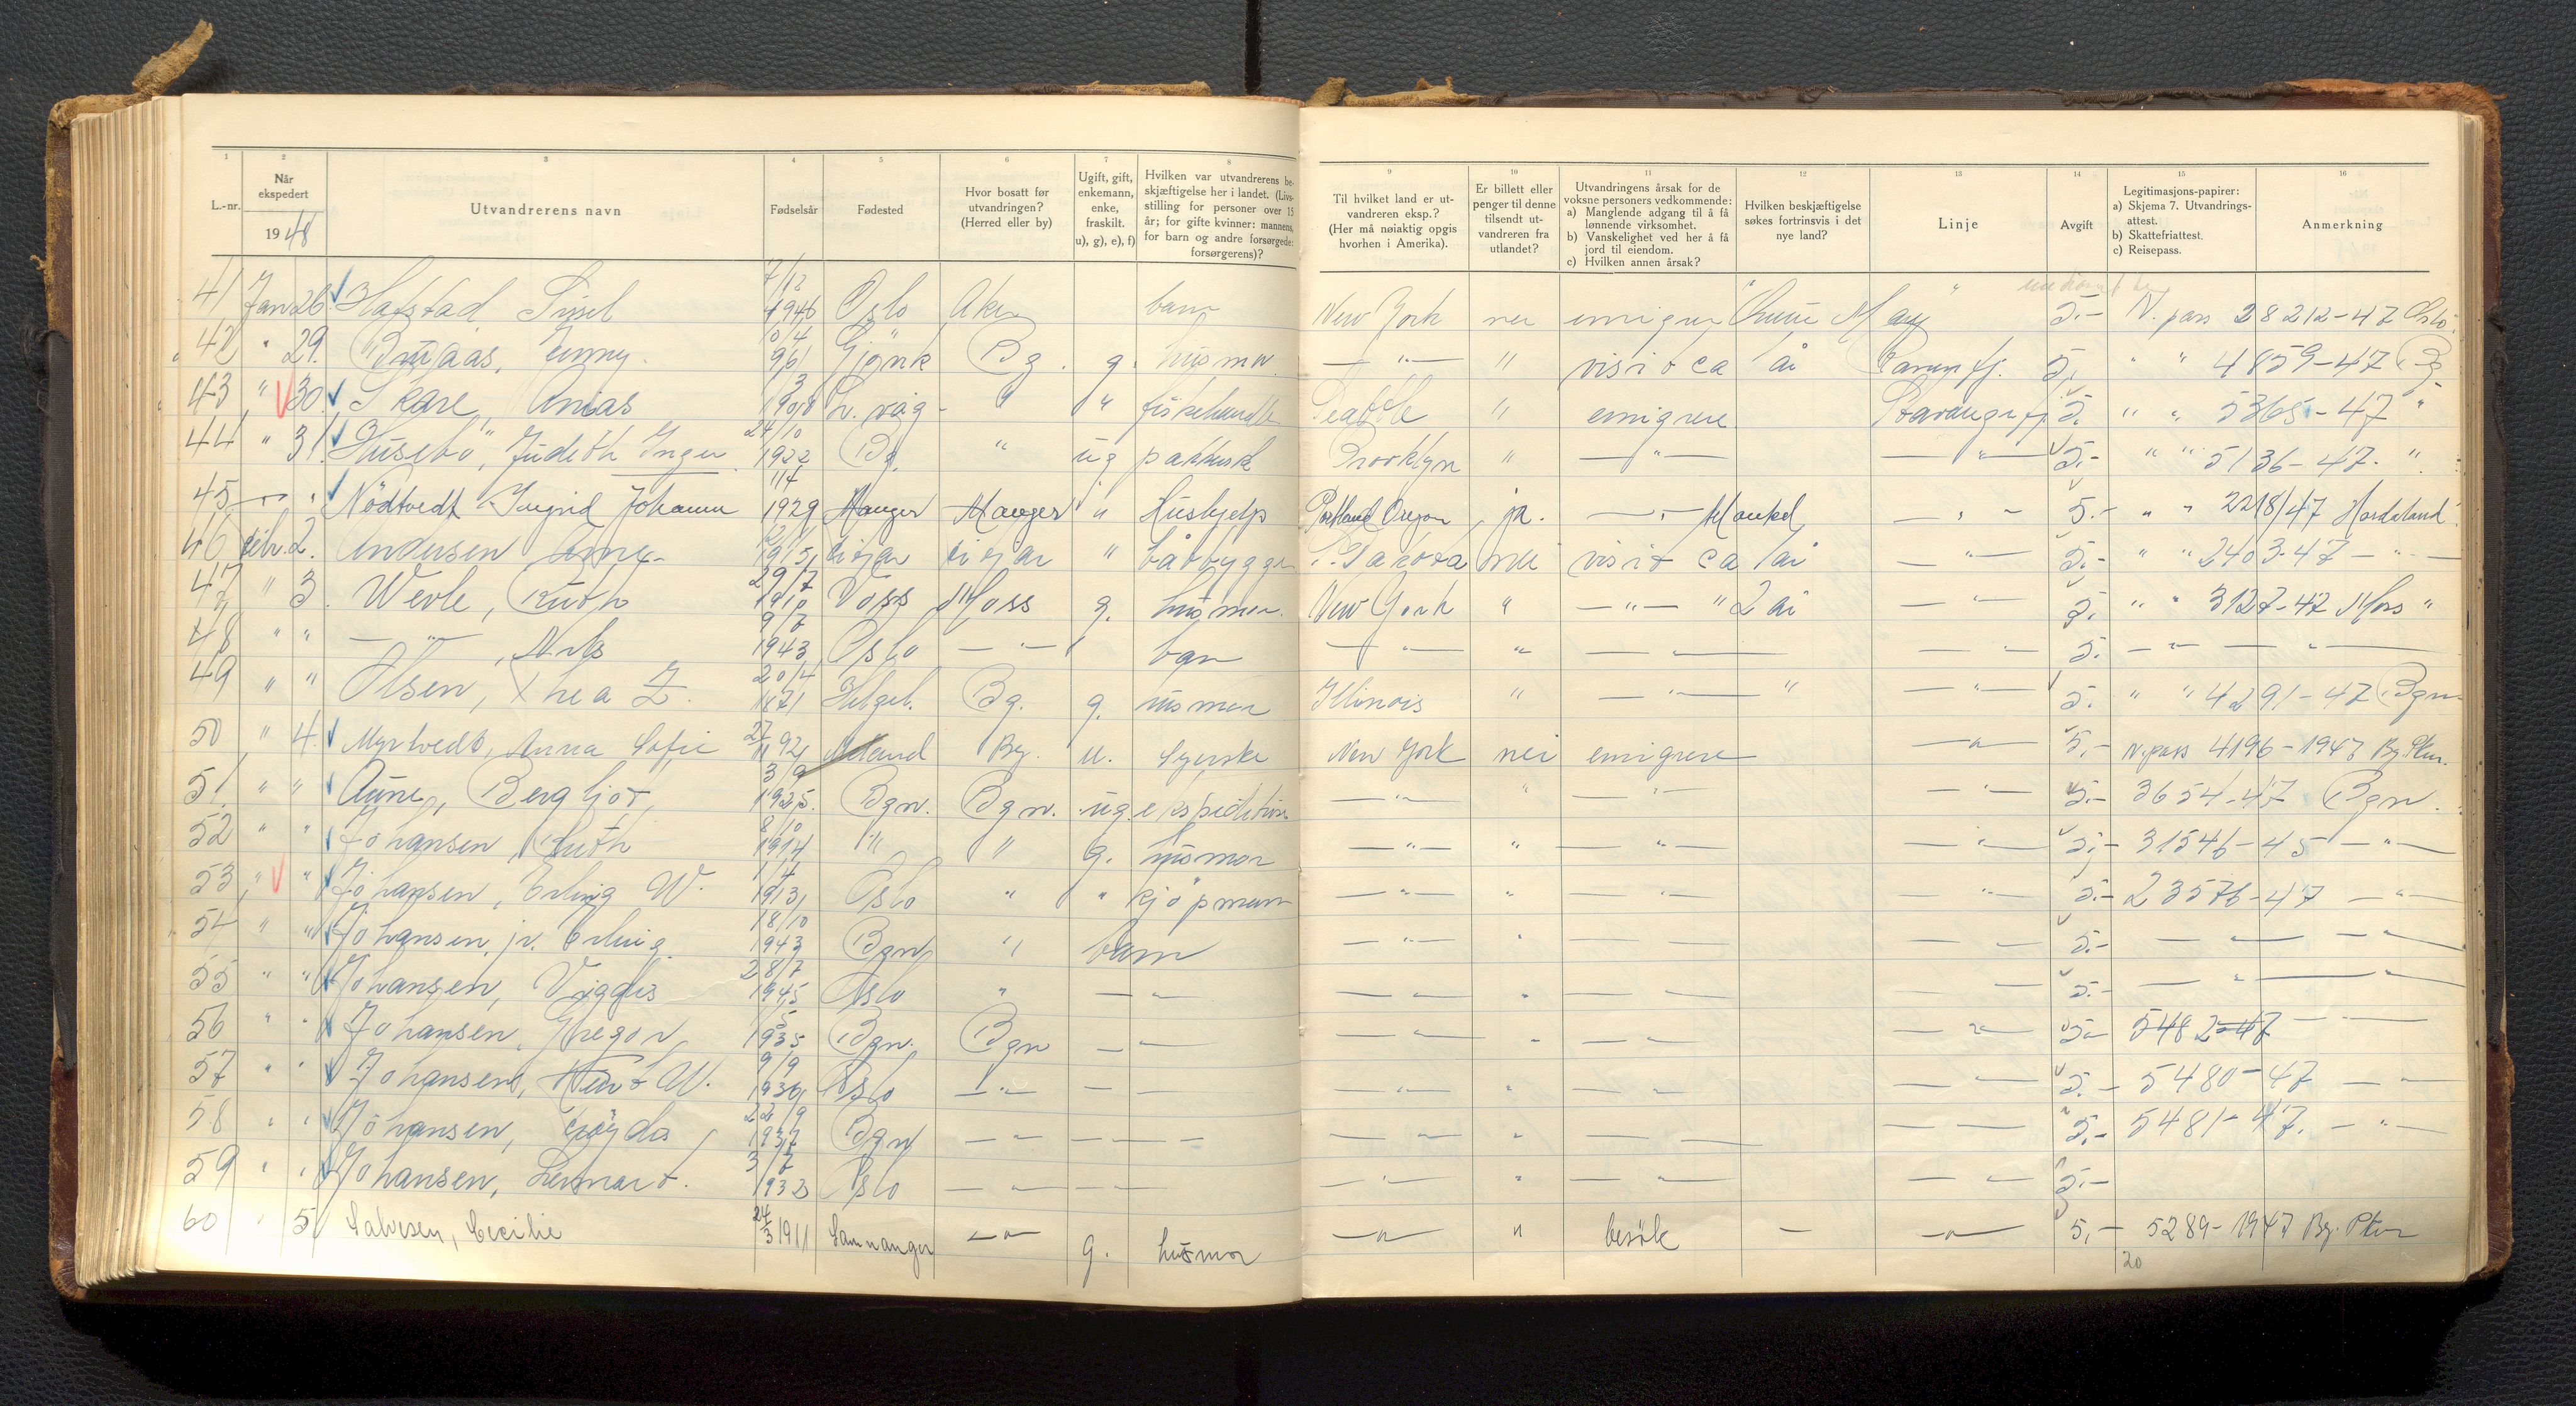 1 2 3 4 5 6 7 8 9 10 11 12 13 14 15 16
L.-nr.
Når ekspedert 1948
Utvandrerens navn
Fødselsår
Fødested
Hvor bosatt før utvandringen? (Herred eller by)
Ugift, gift, enkemann, enke, fraskilt. u), g), e), f)
Hvilken var utvandrerens beskjæftigelse her i landet. (Livsstilling for personer over 15 år; for gifte kvinner: mannens, for barn og andre forsørgede: forsørgerens)?
Til hvilket land er utvandreren eksp.? (Her må nøiaktig opgis hvorhen i Amerika).
Er billett eller penger til denne tilsendt utvandreren fra utlandet?
Utvandringens årsak for de voksne personers vedkommende: a) Manglende adgang til å få lønnende virksomhet. b) Vanskelighet ved her å få jord til eiendom. c) Hvilken annen årsak?
Hvilken beskjæftigelse søkes fortrinsvis i det nye land?
Linje
Avgift
Legitimasjons-papirer: a) Skjema 7. Utvandringsattest. b) Skattefriattest. c) Reisepass.
Anmerkning
41 Jan 26. Hafstad Sissel 7/12 1946 Oslo Aker barn New York nei emigrere 5.- N. pass 28212-47 Oslo.
42 " 29. Bruaas, Jenny. 10/4 Gjøvik Bg. g. husmor —"— " visit ca 5. " " 4859-47 Bg
43 " 30. Skare, Anias 1908 " " fiskehandl Seattle " emigrere Stavangerfj. 5. " " 5365-47 "
44 " 31. Husebö, Judith Inger 24/10 1922 Bg. " ug Brooklyn " —"— —"— 5.- " " 5136-47. "
45 — " Nödtvedt Ingrid Johanne 11/4 1929 Manger Manger " Hushjelp Portland Oregon ja. —"— —"— 5.- " " 2218/47 Hordaland
46 Febr. 2. Andersen 1915 " båtbygger S. Dakota nei visit ca 1 år —"— 5.- " " 2403-47 —"—
47 " 3. Wevle, Ruth 29/7 1910 Voss Moss g. husmor. New York " —"— " 2 år —"— 5. " " 3127-47 Moss "
48 " " —"—, Nils 9/7 1943 Oslo —"— barn —"— " —"— —"— 5. —"— —"—
49 " " Olsen, Thea Z. 20/4 1871 Helgel. Bg. g. husmor Illinois " —"— " —"— 5. " " 4291-47 Bgn
50 " 4. Myrtvedt, Anna Sofie 27/11 92 Bg. u. Syerske New York nei emigrere —"— 5,- N.pass 4196-1947 Bg. Pkm.
51 " " Aune, Bergljot 3/9 1925. Bgn. Bgn. ug. ekspeditrise —"— " —"— —"— 5.- 3654-47 Bgn.
52 " " Johansen, Ruth 8/10 1914 " " g. husmor —"— " —"— —"— 5,- 31546-45 —"—
53 " " Johansen, Erling W. 1/4 1913 Oslo " " kjøpmann —"— " —"— —"— 5.- 23576-47 —"—
54 " " Johansen, jr. Erling 18/10 1943 Bgn " barn —"— " —"— —"— 5.- —"— —"—
55 " " Johansen, Viggdis 28/7 1945 Oslo " —"— —"— " —"— —"— 5.- —"— —"—
56 " " Johansen, Gregor 1935 Bgn. Bgn —"— —"— " —"— —"— 5.- 5482-47 —"—
57 " " Johansen, Knut W. 9/9 1936 Oslo —"— — —"— " —"— —"— 5.- 5480-47 —"—
58 " " Johansen, 22/9 1937 Bgn —"— —"— —"— " —"— —"— 5.- 5481-47. —"—
59 " " Johansen, Lennart. 3/7 1932 Oslo —"— —"— —"— " —"— —"— 5.-
60 " 5. Salvesen, Cecilie 24/3 1911 Samnanger —"— g. husmor —"— " besök — —"— 5,- 5289-1947 Bg. Pkm
20